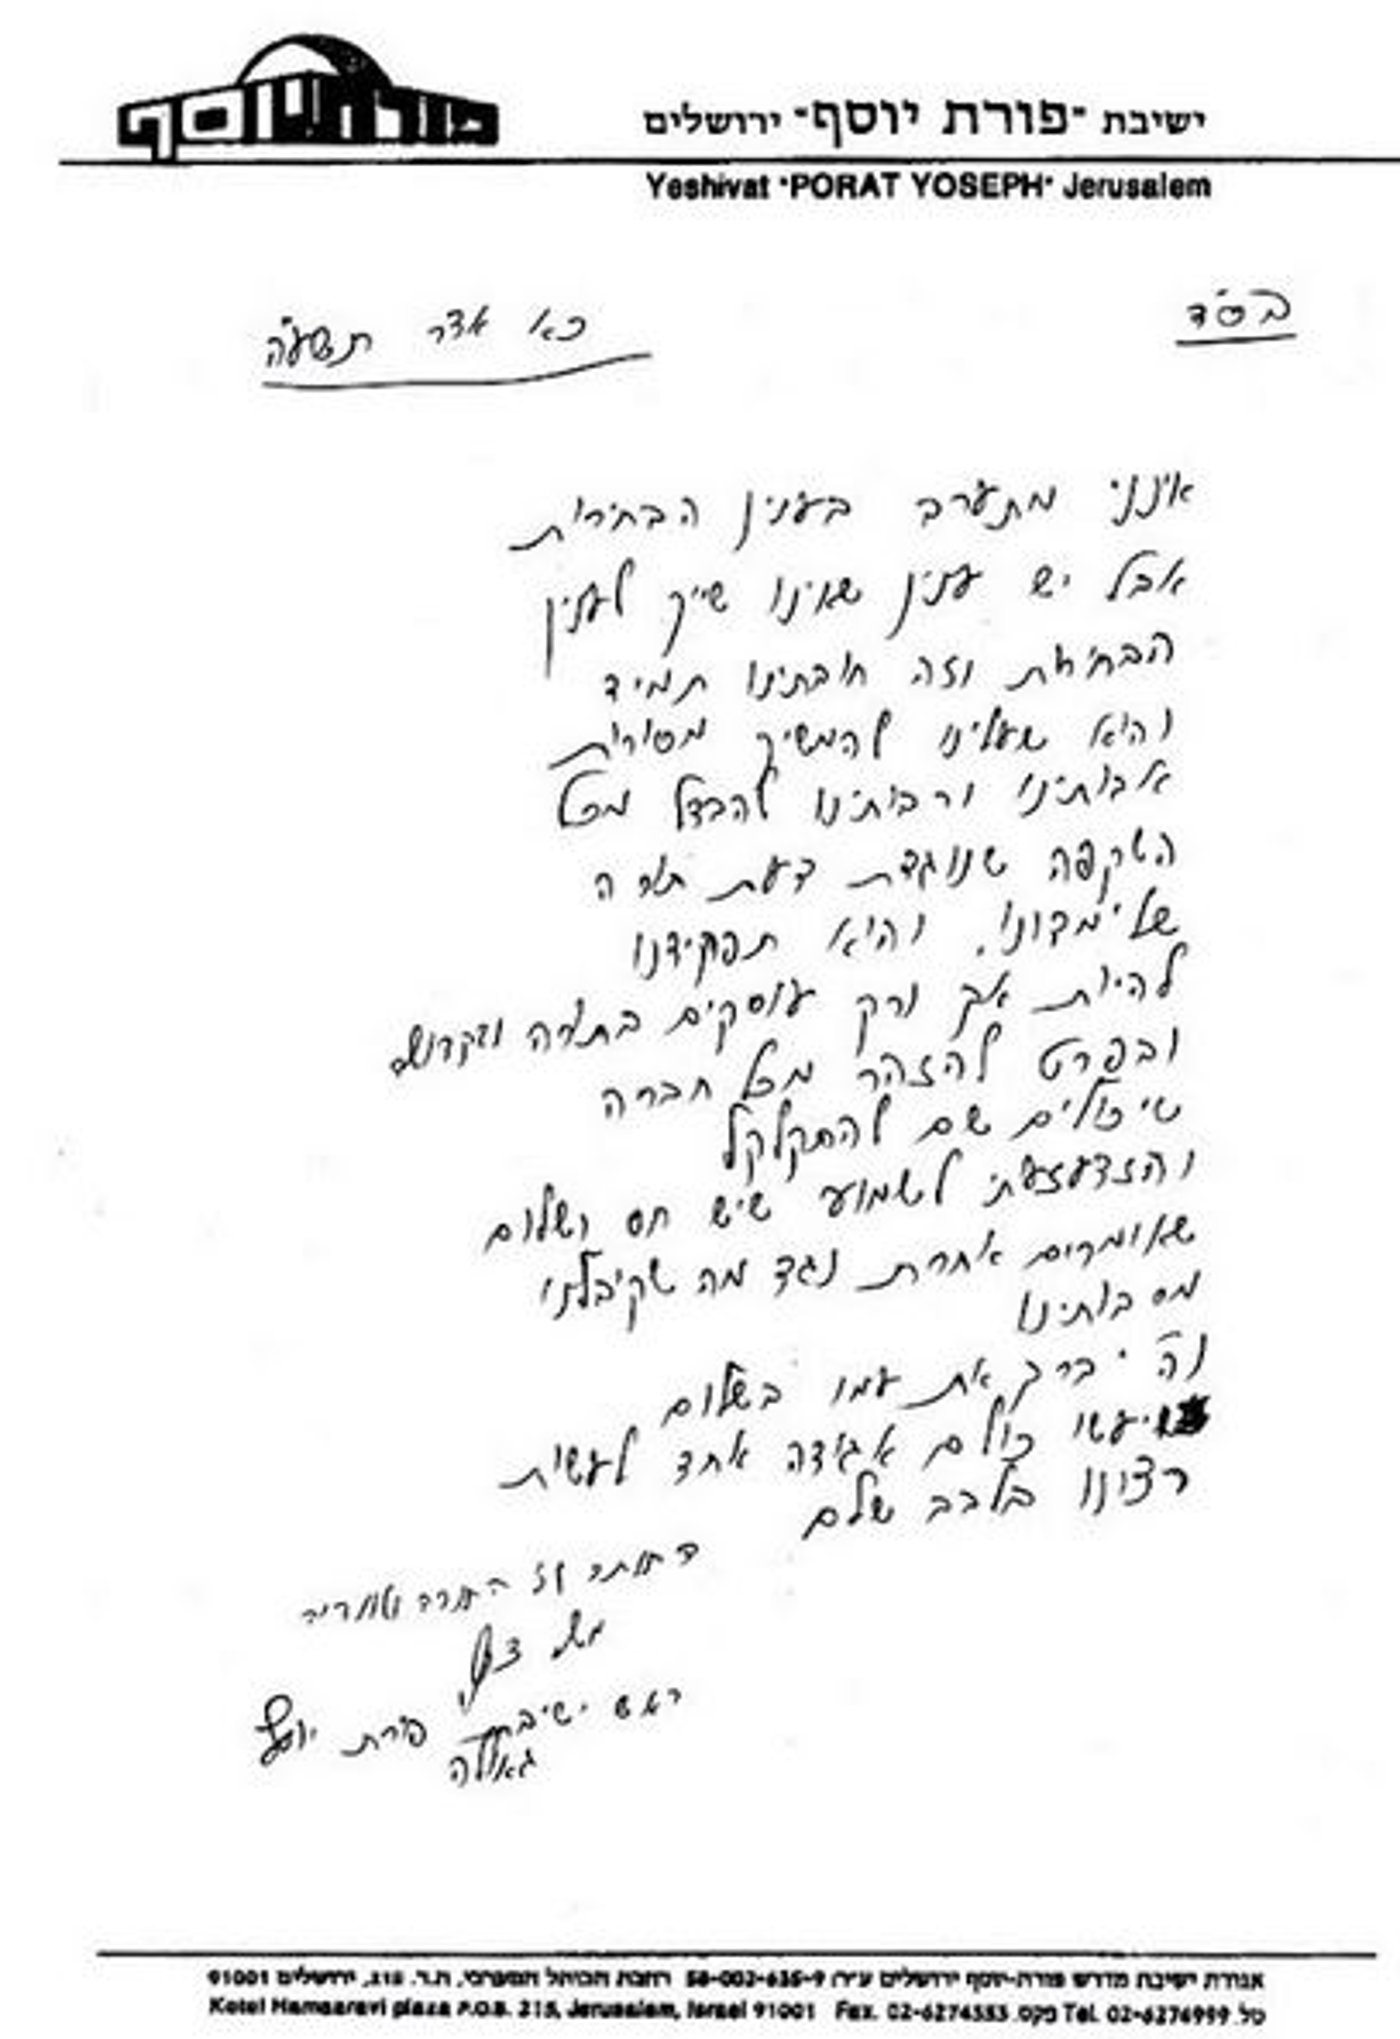 פורת יוסף
ישיבת "פורת יוסף" ירושלים
Yeshivat "PORAT YOSEPH" Jerusalem
בס"ד
כא אדר תשע"ה
אינני מתערב בענין הבחירות
אבל יש ענין שאינו שייך לענין
הבחירות וזה חובתינו תמיד
והיא שעלינו להמשיך מסורות
אבותינו ורבותינו להבדל מכל
השקפה שנוגדת דעת תורה
שלימדונו. והיא תפקידנו
להיות אך ורק עוסקים בתורה
ובפרט להזהר מכל חברה
שיכולים שם להתקלקל
והזדעזעתי לשמוע שיש חס ושלום
שאומרים אחרת נגד מה שקיבלנו
מרבותינו
וה' יברך את עמו בשלום
שיעשו כולם אגודה אחד לעשות
רצונו בלבב שלם
התורה
משה
ראש ישיבת פורת יוסף
גאולה
אגודת ישיבת מדרש פורת-יוסף ירושלים ע"ר 58-002-635-9 רחבת הכותל המערבי, ת.ד. 215, ירושלים 91001
Kotel Hamaaravi plaza P.O.B. 215, Jerusalem, Israel 91001 Fax. 02-6274553 פקס. Tel. 02-6276999 טל.